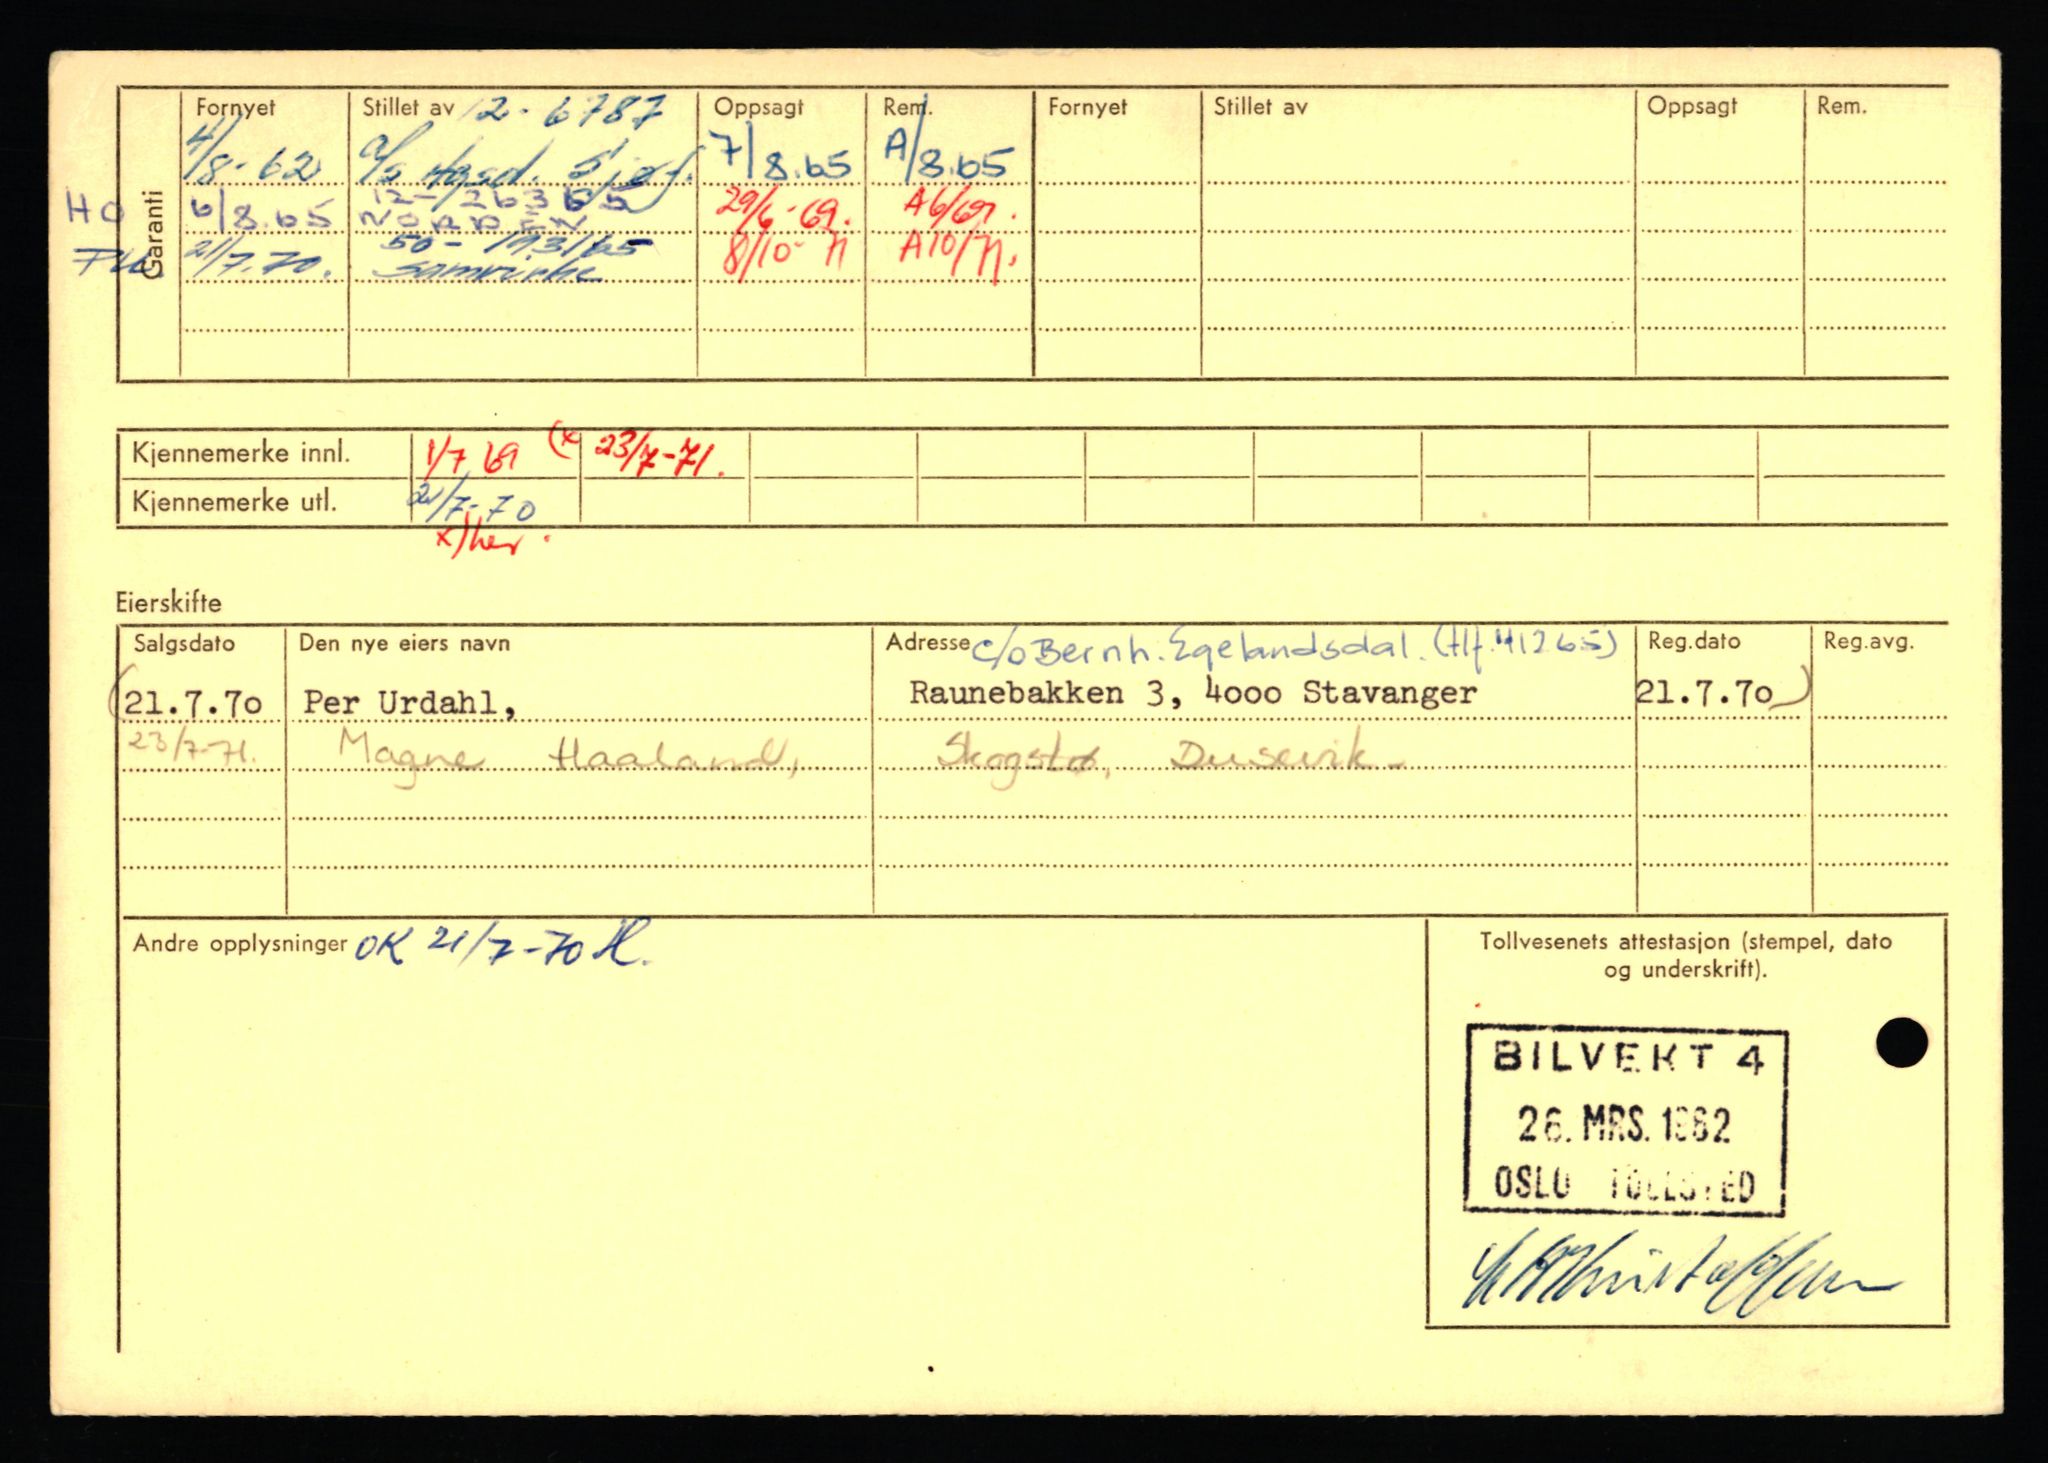 Garanti
Fornyet Stillet av 12-6787 Oppsagt Rem. Fornyet Stillet av Oppsagt Rem.
4/8-62 a/s Agsd. Sjøf. 7/8.65 A/8.65
HO 6/8.65 12-126365 NORDEN 29/6-69. A6/69.
21/7.70. 50-1931/65 Samvirke 8/10-71 A10/71.
Kjennemerke innl. 1/7 69 (x 23/7-71.
Kjennemerke utl. 21/7-70
x) her.
Eierskifte
Salgsdato Den nye eiers navn Adresse c/o Bernh. Egelandsdal. (tlf. 41265) Reg.dato Reg.avg.
(21.7.70 Per Urdahl, Raunebakken 3, 4000 Stavanger 21.7.70)
23/7-71. Magne Haaland, Dusevik
Andre opplysninger OK 21/7-70 H.
Tollvesenets attestasjon (stempel, dato
og underskrift).
BILVEKT 4
26. MRS. 1962
OSLO TOLLSTED